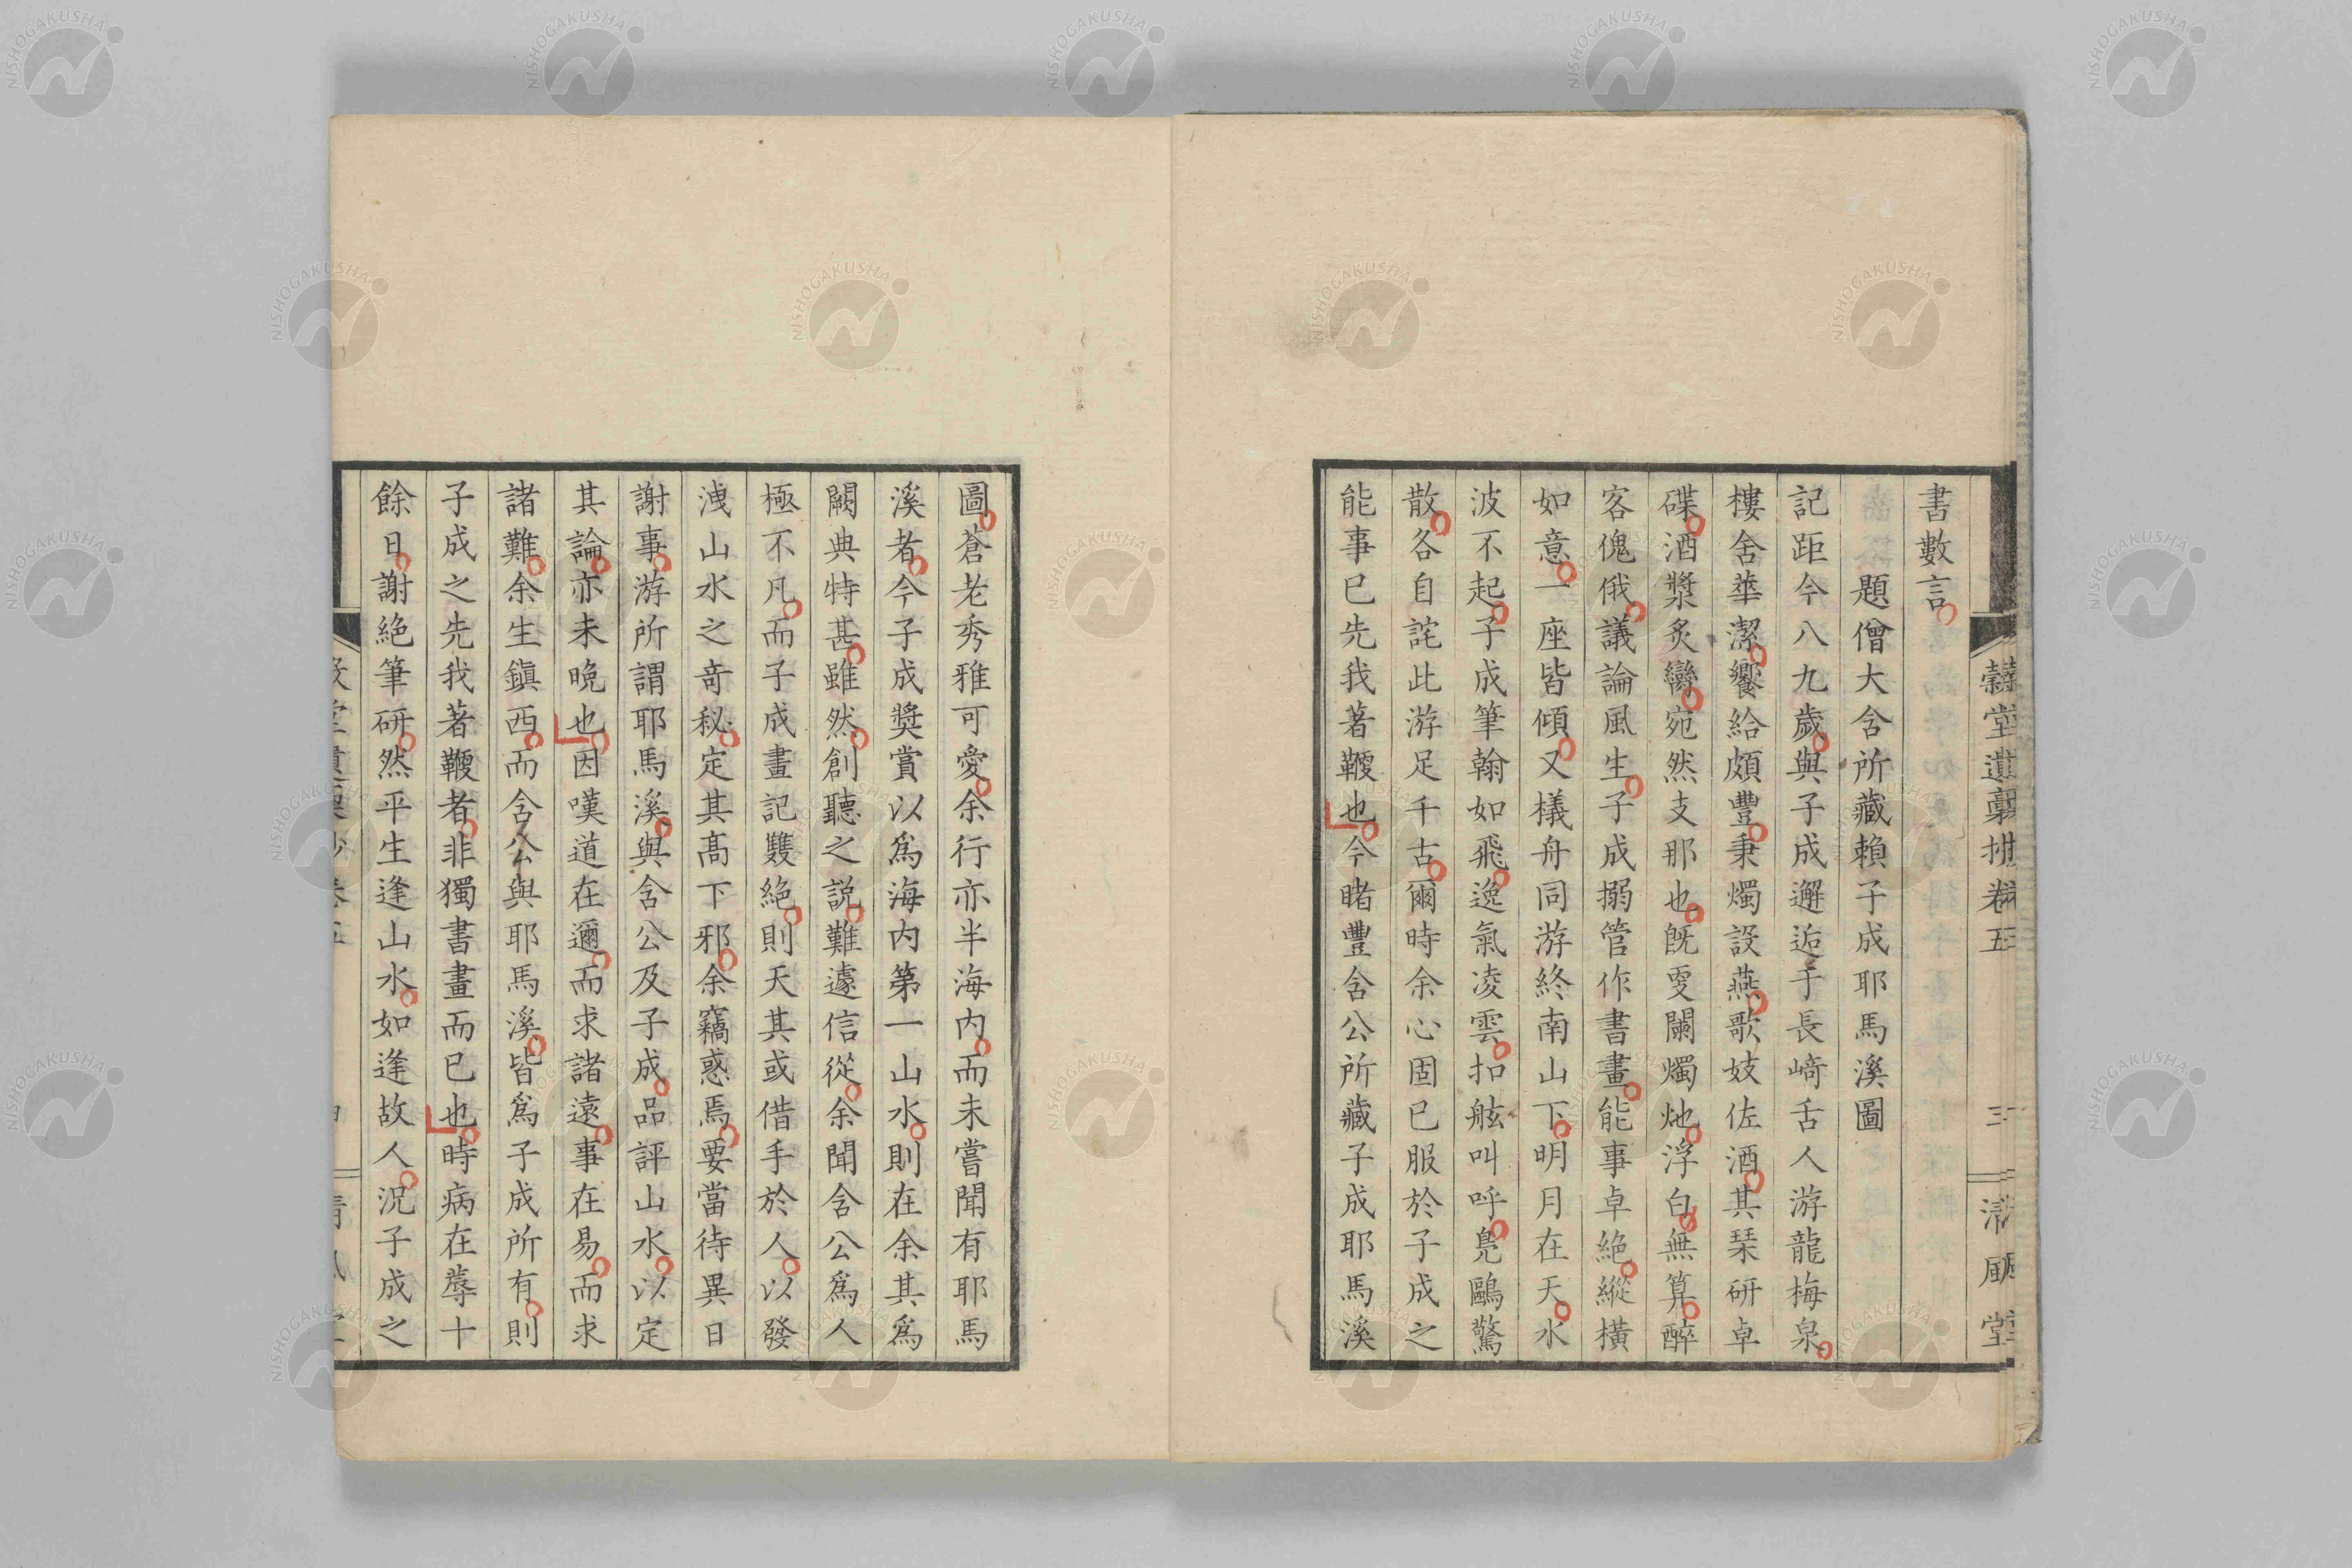 穀堂遺稾抄卷五
三
清風堂
書數言
題僧大含所藏賴子成耶馬溪圖
記距今八九歲與子成邂逅于長﨑舌人游龍梅泉
樓舍華潔饗給頗豐秉燭設燕歌妓佐酒其琹研卓
碟酒漿炙臠宛然支那也旣更闌燭灺浮白無算醉
客傀俄議論風生子成搦管作書畫能事卓絕縱橫
如意一座皆傾又檥舟同游終南山下明月在天水
波不起子成筆翰如飛逸氣凌雲扣舷叫呼鳧鷗驚
散各自詫此游足千古爾時余心固已服於子成之
能事已先我著鞭也今睹豐含公所藏子成耶馬溪
圖蒼老秀雅可愛余行亦半海內而未嘗聞有耶馬
溪者今子成奬賞以爲海內第一山水則在余其爲
闕典特甚雖然創聽之說難遽信從余聞含公爲人
極不凡而子成畫記雙絕則天其或借手於人以發
洩山水之奇秘定其髙下邪余竊惑焉要當待異日
謝事游所謂耶馬溪與含公及子成品評山水以定
其論亦未晚也因嘆道在邇而求諸遠事在易而求
諸難余生鎭西而含公與耶馬溪皆爲子成所有則
子成之先我著鞭者非獨書畫而已也時病在蓐十
餘日謝絕筆研然平生逢山水如逢故人況子成之
NISHOGAKUSHA